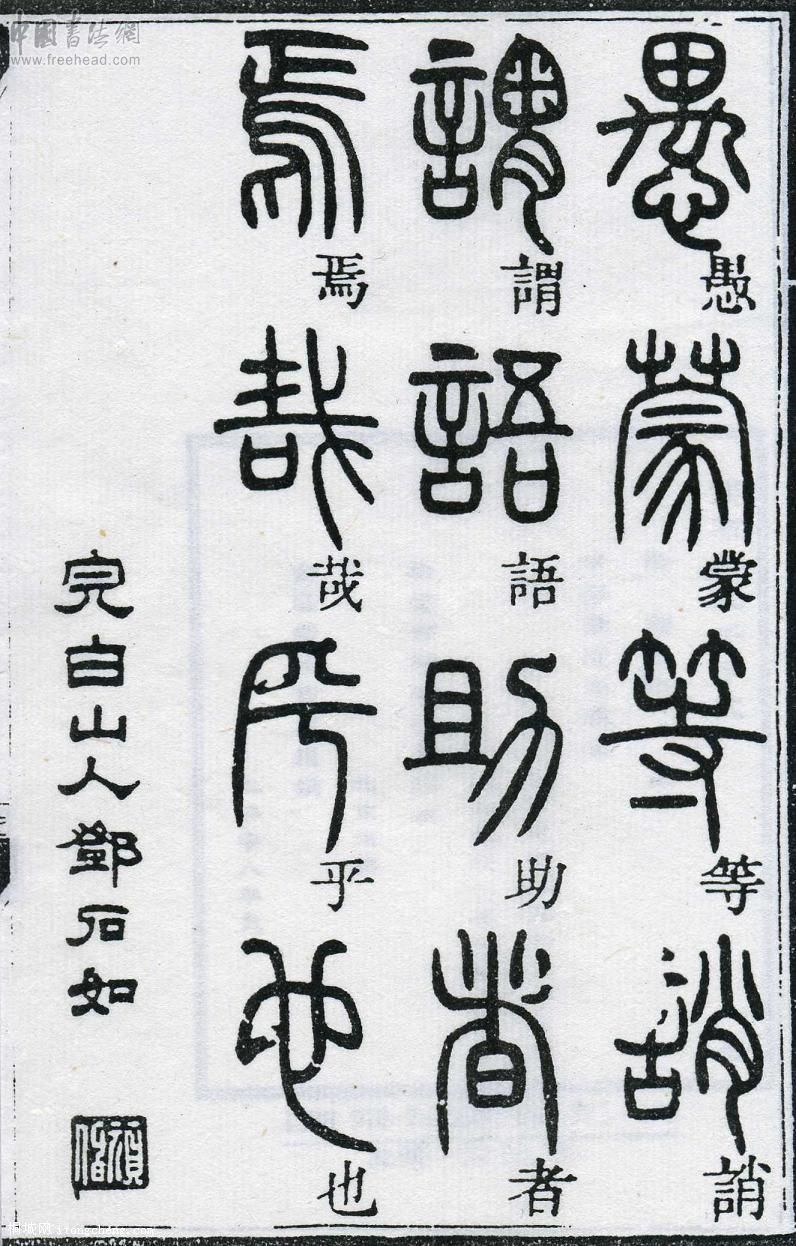 愚蒙等誚
愚蒙等誚
謂語助者
謂語助者
焉哉乎也
焉哉乎也
完白山人鄧石如
中國書法網
www.freehead.com